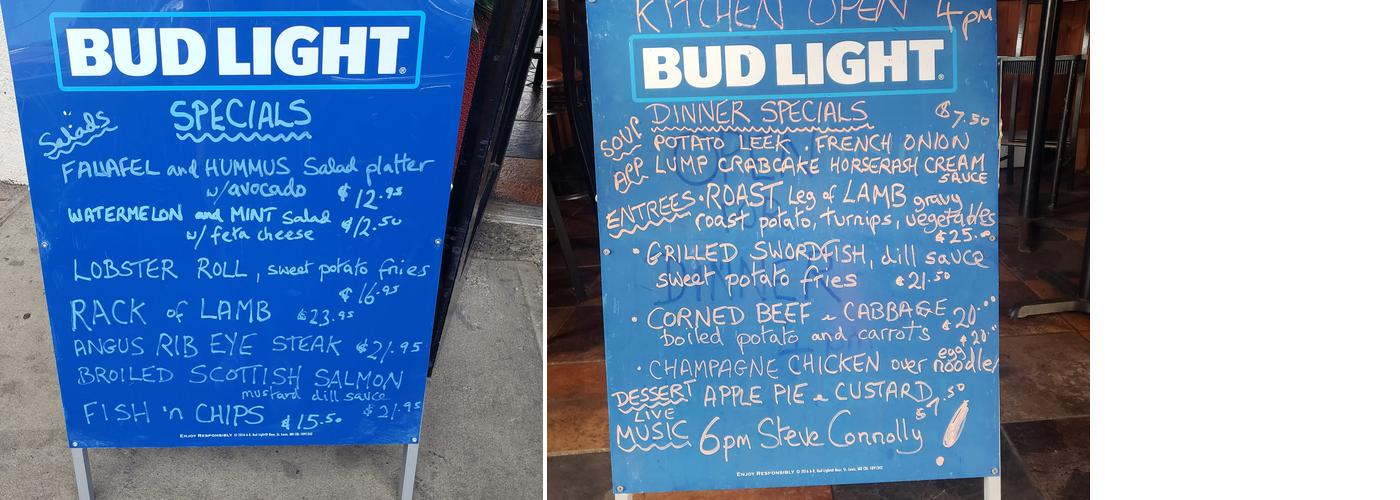 BUD LIGHT
SPECIALS
Salads
FALIAFEL and HUMMUS Salad platter
w/avocado $12.95
WATERMELON and MINT Salad
w/ feta cheese $12.50
LOBSTER ROLL, sweet potato fries
$16.95
RACK of LAMB $23.95
ANGUS RIB EYE STEAK $21.95
BROILED SCOTTISH SALMON
mustard dill sauce
$21.95
FISH 'n CHIPS $15.50
ENJOY RESPONSIBLY
KITCHEN OPEN 4pm
BUD LIGHT
DINNER SPECIALS $7.50
SOUP POTATO LEEK . FRENCH ONION
APP LUMP CRABCAKE HORSERASH CREAM
SAUCE
ENTREES • ROAST Leg of LAMB gravy
roast potato, turnips, vegetables
$25.00
• GRILLED SWORDFISH, dill sauce
sweet potato fries $21.50
• CORNED BEEF & CABBAGE $20.00
boiled potato and carrots $20.00
egg
• CHAMPAGNE CHICKEN over noodles
DESSERT APPLE PIE & CUSTARD
$7.50
LIVE
MUSIC 6pm Steve Connolly
ENJOY RESPONSIBLY